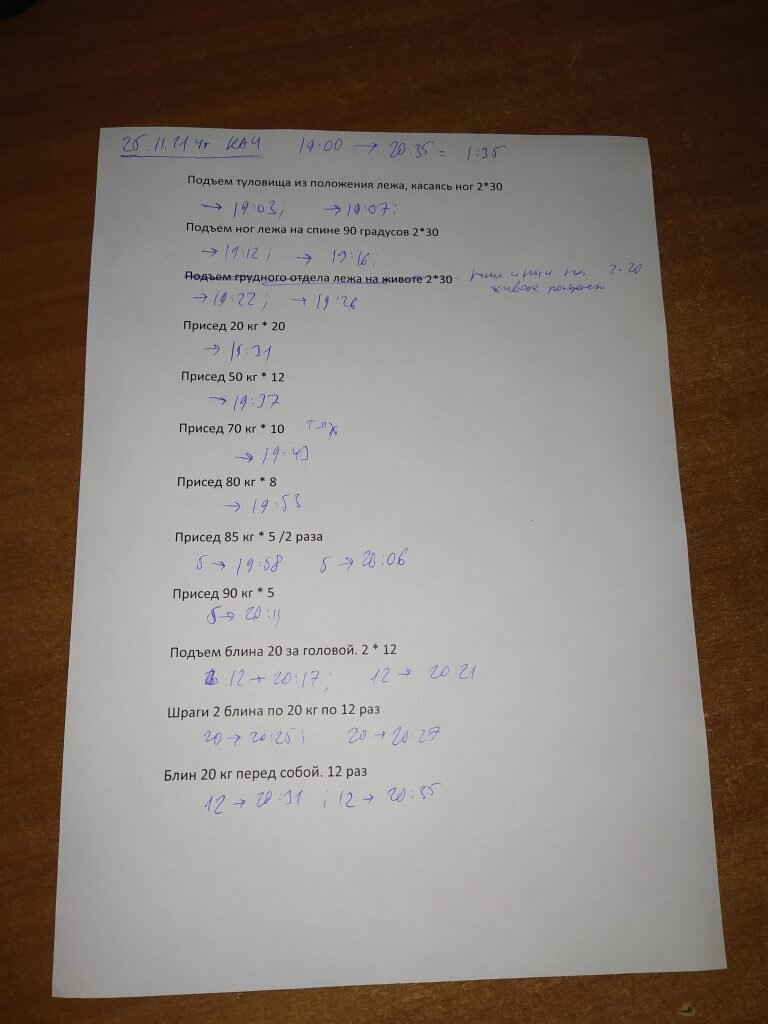 25.11.21 чт КАЧ 19:00 → 20:35 = 1:35
Подъем туловища из положения лежа, касаясь ног 2*30
→ 19:03; → 19:07;
Подъем ног лежа на спине 90 градусов 2*30
→ 19:12; → 19:16;
Подъем грудного отдела лежа на животе 2*30 и ноги на 2·20
животе
→ 19:22; → 19:26
Присед 20 кг * 20
→ 19:31
Присед 50 кг * 12
→ 19:37
Присед 70 кг * 10 тяж
→ 19:43
Присед 80 кг * 8
→ 19:53
Присед 85 кг * 5 /2 раза
5 → 19:58 5 → 20:06
Присед 90 кг * 5
5 → 20:11
Подъем блина 20 за головой. 2 * 12
12 → 20:17; 12 → 20:21
Шраги 2 блина по 20 кг по 12 раз
20 → 20:25; 20 → 20:27
Блин 20 кг перед собой. 12 раз
12 → 20:31 ; 12 → 20:35